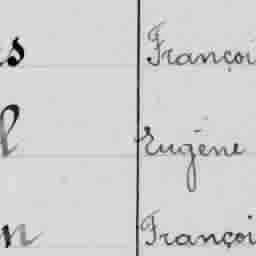 s Françoi
l Eugène
n Françoi